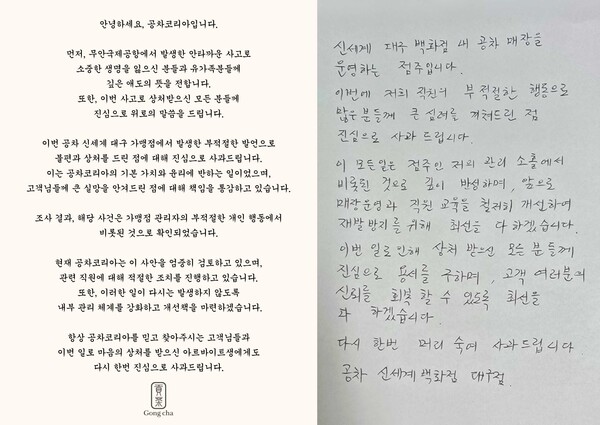 안녕하세요, 공차코리아입니다.
먼저, 무안국제공항에서 발생한 안타까운 사고로
소중한 생명을 잃으신 분들과 유가족분들께
깊은 애도의 뜻을 전합니다.
또한, 이번 사고로 상처받으신 모든 분들께
진심으로 위로의 말씀을 드립니다.
이번 공차 신세계 대구 가맹점에서 발생한 부적절한 발언으로
불편과 상처를 드린 점에 대해 진심으로 사과드립니다.
이는 공차코리아의 기본 가치와 윤리에 반하는 일이었으며,
고객님들께 큰 실망을 안겨드린 점에 대해 책임을 통감하고 있습니다.
조사 결과, 해당 사건은 가맹점 관리자의 부적절한 개인 행동에서
비롯된 것으로 확인되었습니다.
현재 공차코리아는 이 사안을 엄중히 검토하고 있으며,
관련 직원에 대해 적절한 조치를 진행하고 있습니다.
또한, 이러한 일이 다시는 발생하지 않도록
내부 관리 체계를 강화하고 개선책을 마련하겠습니다.
항상 공차코리아를 믿고 찾아주시는 고객님들과
이번 일로 마음의 상처를 받으신 아르바이트생에게도
다시 한번 진심으로 사과드립니다.
貢茶
Gong cha
신세계 대구 백화점 내 공차 매장을
운영하는 점주입니다.
이번에 저희 직원의 부적절한 행동으로
많은 분들께 큰 심려를 끼쳐드린 점
진심으로 사과 드립니다.
이 모든일은 점주인 저희 관리 소홀에서
비롯된 것으로 깊이 반성하며, 앞으로
매장운영과 직원 교육을 철저히 개선하여
재발 방지를 위해 최선을 다 하겠습니다.
이번 일로 인해 상처 받으신 모든 분들께
진심으로 용서를 구하며, 고객 여러분의
신뢰를 회복 할 수 있도록 최선을
다 하겠습니다.
다시 한번 머리 숙여 사과드립니다
공차 신세계백화점 대구점.